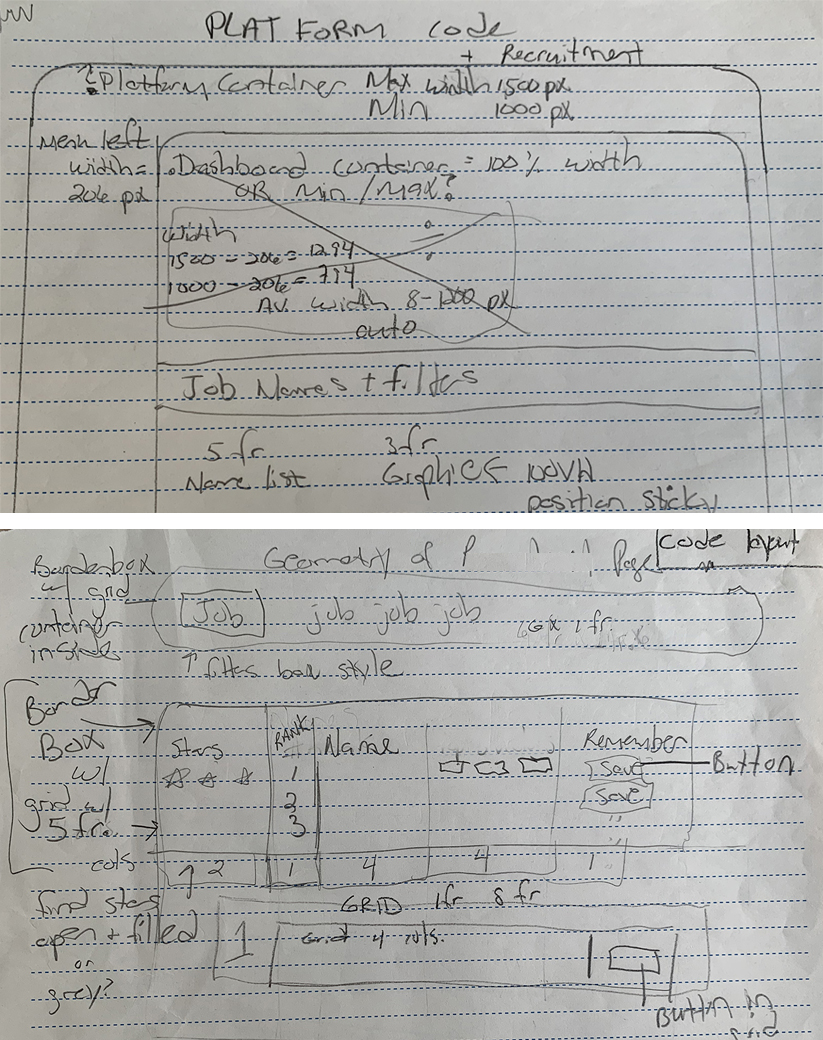 PLATFORM Code
+ Recruitment
Platform Container Max width 1500 px
Min 1000 px
Menu left
width =
206 px
Dashboard container = 100% width
OR Min / Max?
Width
1500 - 206 = 1294
1000 - 206 = 794
AV. width 8-1200 px
auto
Job Names + filters
5 fr 3 fr
Name list Graphic 100VH
position sticky
Geometry of P Page
Code layout
Borderbox
w/ grid
container
inside
Job job job job
1 fr
↑ filters bar style
Border
Box
w/
grid w/
5 fr.
cols
Stars RANK Name Remember
☆ ☆ ☆ 1 Save Button
2 Save
3
↑ 2 1 4 4 1
find stars
open + filled
or
grey?
GRID 1fr 8 fr
1 Grid 4 cols.
Button in